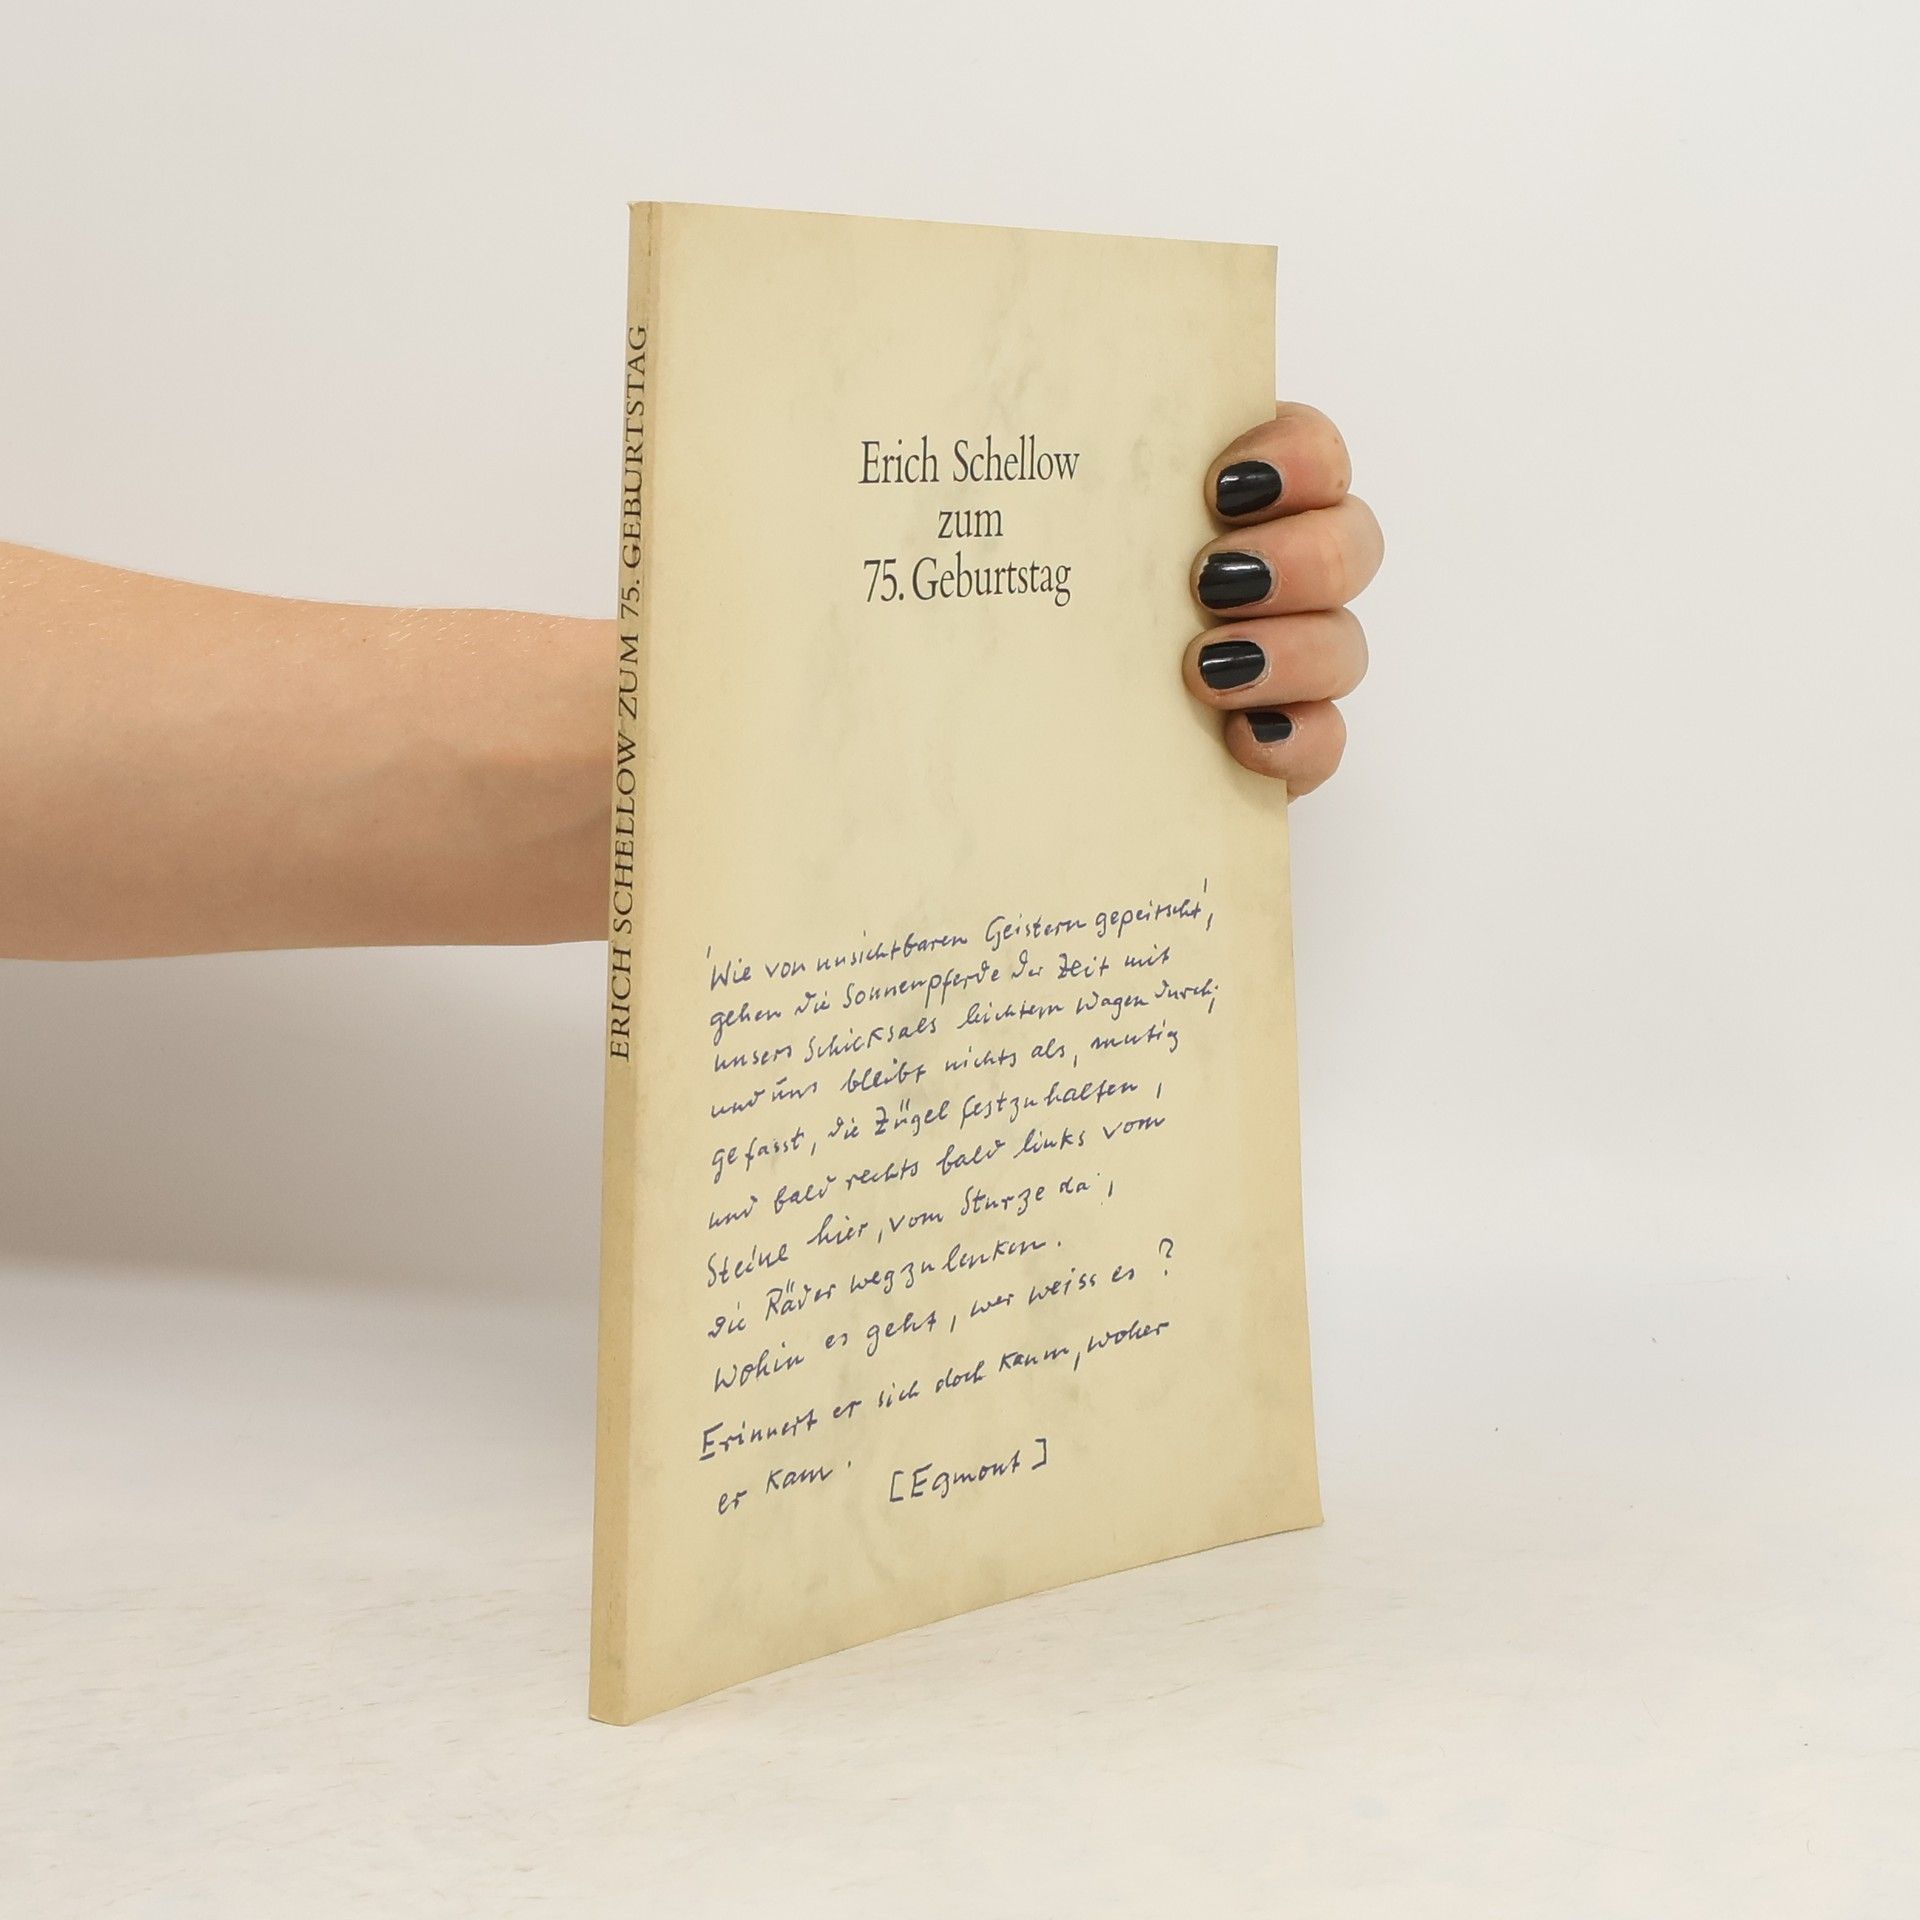 ERICH SCHELLOW ZUM 75. GEBURTSTAG
Erich Schellow
zum
75. Geburtstag
'Wie von unsichtbaren Geistern gepeitscht',
gehen die Sonnenpferde der Zeit mit
unsers Schicksals leichtem Wagen durch;
und uns bleibt nichts als, mutig
gefasst, die Zügel festzuhalten,
und bald rechts bald links vom
Steine hier, vom Sturze da,
die Räder wegzulenken.
Wohin es geht, wer weiss es?
Erinnert er sich doch kaum, woher
er kam.
[Egmont]